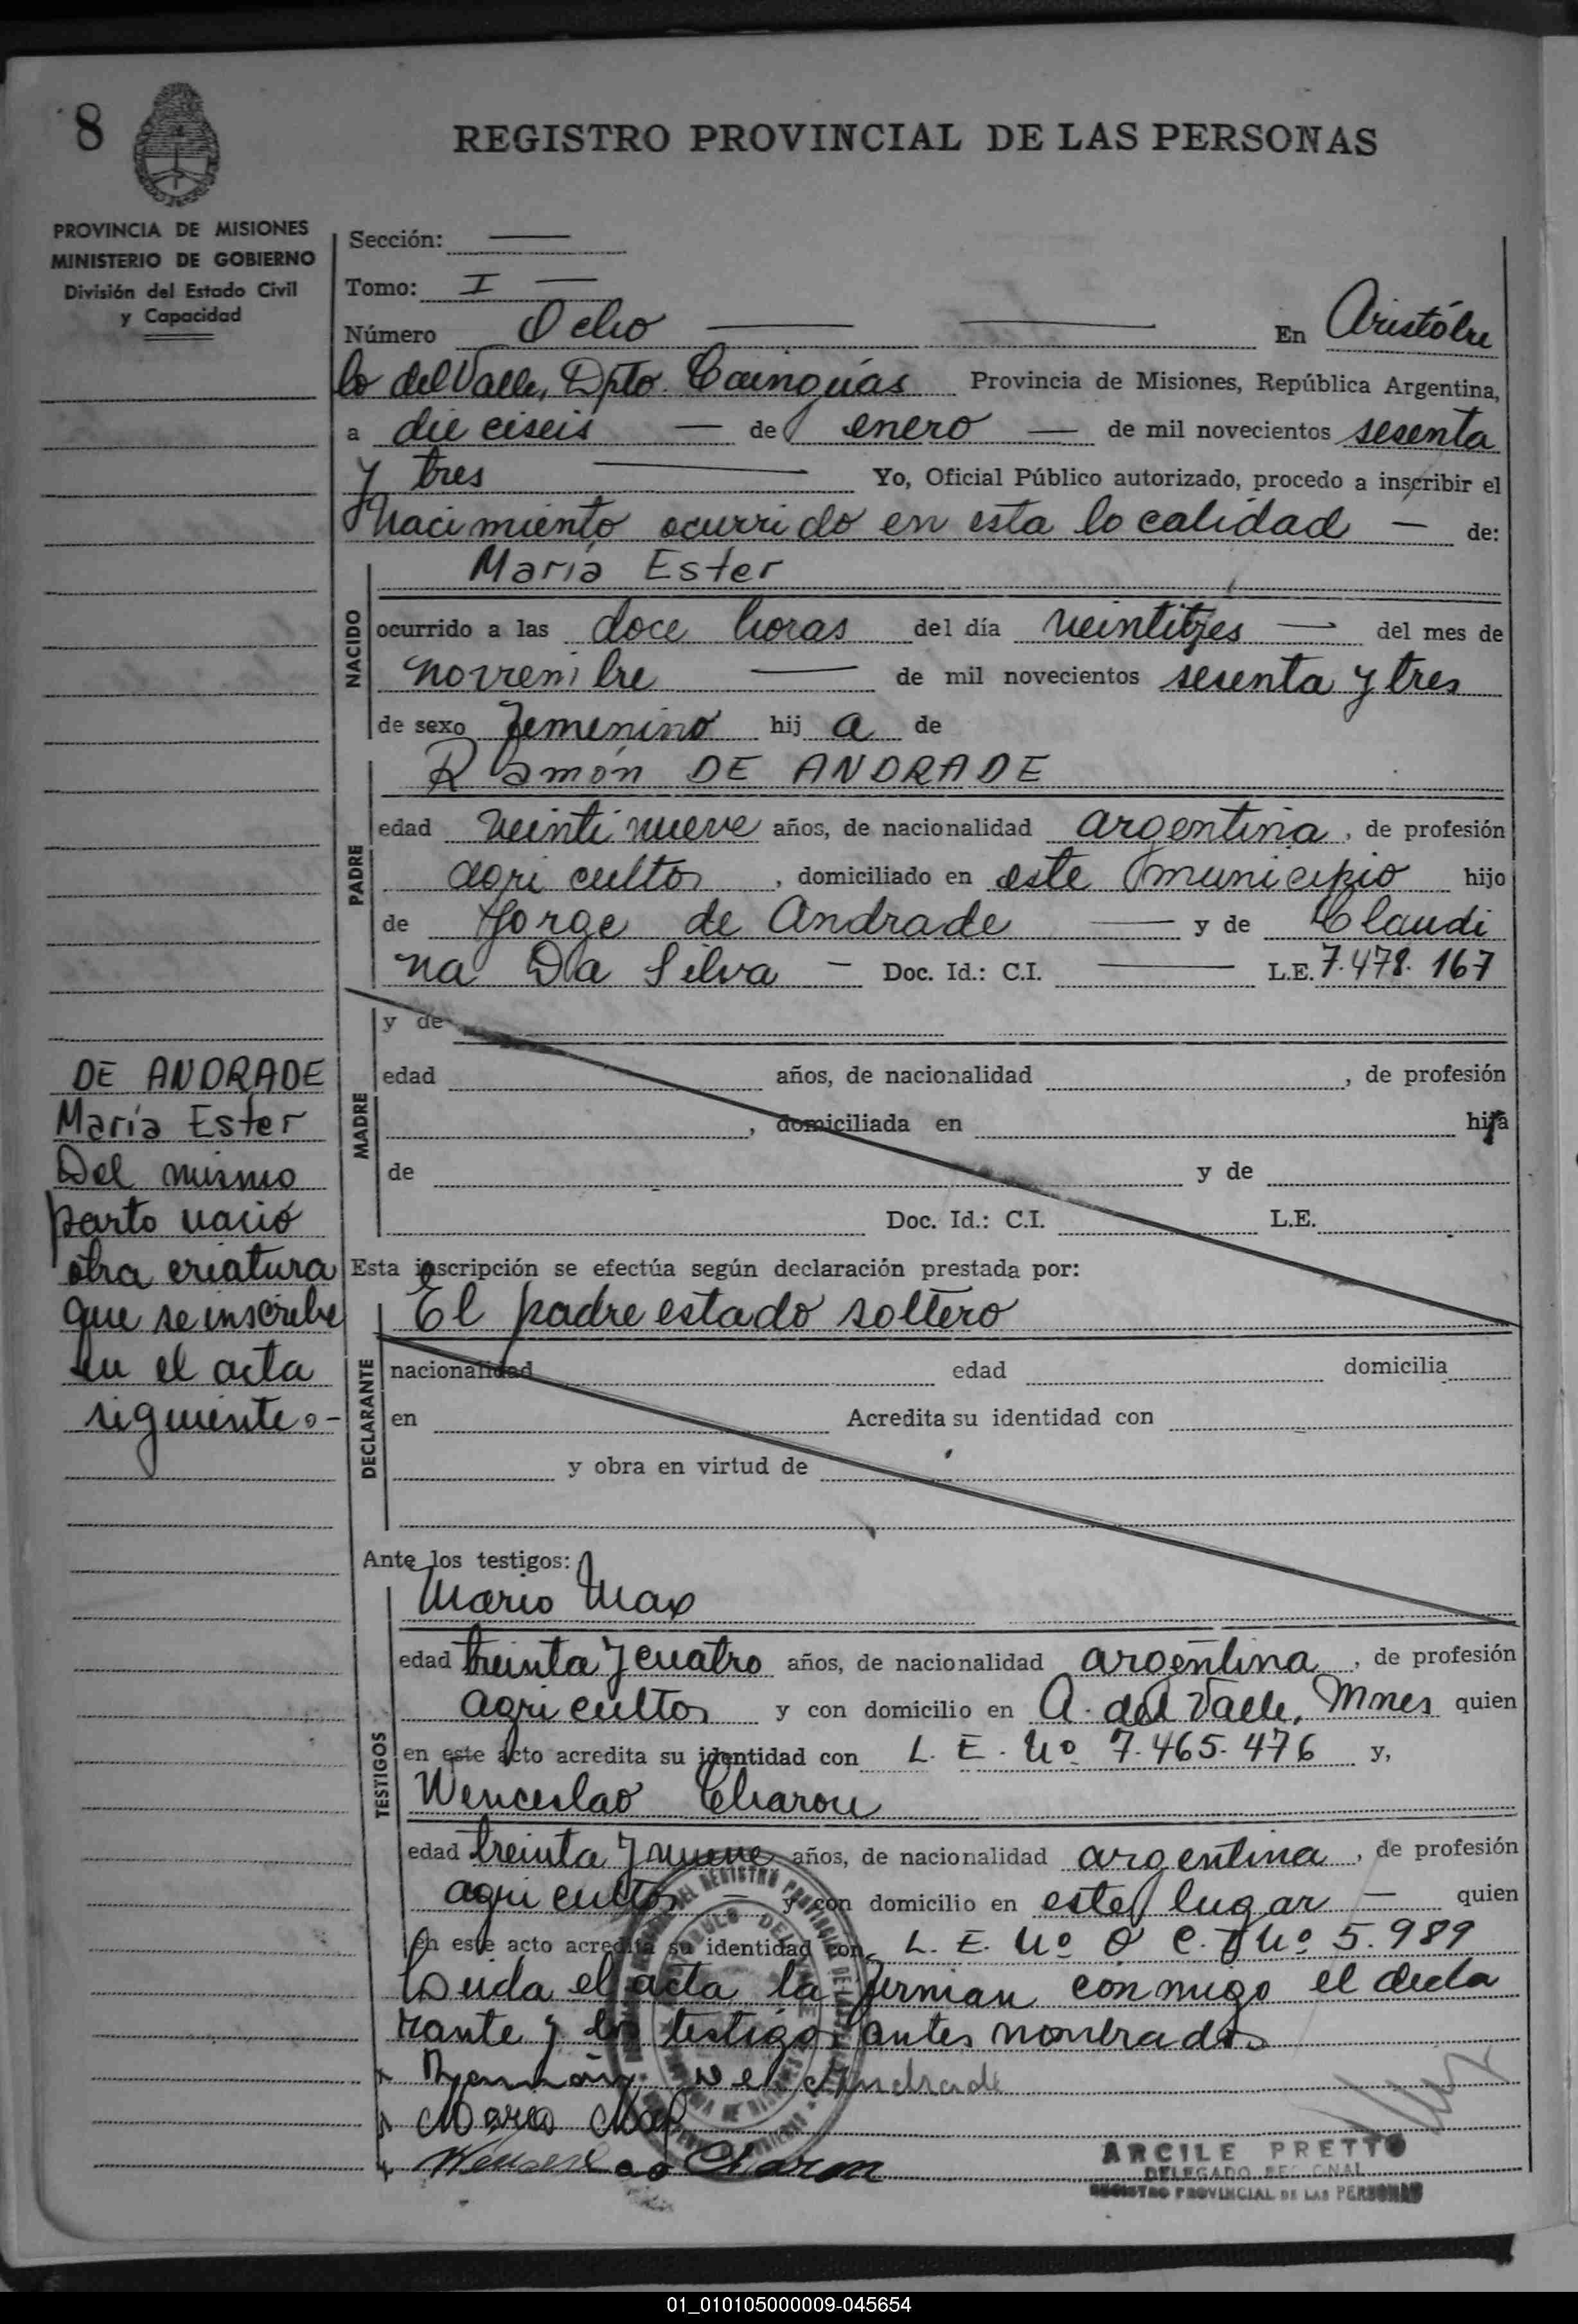 8
REGISTRO PROVINCIAL DE LAS PERSONAS
PROVINCIA DE MISIONES
MINISTERIO DE GOBIERNO
División del Estado Civil
y Capacidad
Sección: —
Tomo: I —
Número Ocho — — En Aristóbu
lo del Valle, Dpto. Cainguás Provincia de Misiones, República Argentina,
a dieciseis — de enero — de mil novecientos sesenta
y tres — Yo, Oficial Público autorizado, procedo a inscribir el
Nacimiento ocurrido en esta localidad — de:
NACIDO
María Ester
ocurrido a las doce horas del día veintitres — del mes de
noviembre — de mil novecientos sesenta y tres
de sexo femenino hij a de
PADRE
Ramón DE ANDRADE
edad veintinueve años, de nacionalidad argentina, de profesión
agricultor, domiciliado en este municipio hijo
de Jorge de Andrade — y de Claudi
na Da Silva — Doc. Id.: C.I. — L.E. 7.478.167
MADRE
y de
edad años, de nacionalidad , de profesión
, domiciliada en hija
de y de
Doc. Id.: C.I. L.E.
DE ANDRADE
María Ester
Del mismo
parto nació
otra criatura
que se inscribe
en el acta
siguiente.-
Esta inscripción se efectúa según declaración prestada por:
DECLARANTE
El padre estado soltero
nacionalidad edad domicilia
en Acredita su identidad con
y obra en virtud de
Ante los testigos:
TESTIGOS
Mario Max
edad treinta y cuatro años, de nacionalidad argentina, de profesión
agricultor y con domicilio en A. del Valle, Mnes quien
en este acto acredita su identidad con L. E. Nº 7.465.476 y,
Wenceslao
edad treinta y nueve años, de nacionalidad argentina, de profesión
agricultor — y con domicilio en este lugar — quien
en este acto acredita su identidad con L. E. Nº 5.989
Leida el acta la firman conmigo el decla
rante y los testigos antes nombrados
de Andrade
ARCILE PRETTO
DELEGADO REGIONAL
REGISTRO PROVINCIAL DE LAS PERSONAS
01_010105000009-045654